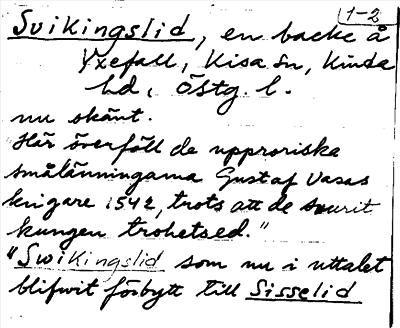 1-2
Svikingslid, en backe å
Yxefall, Kisa sn, Kinda
hd, Östg. l.
nu skänt.
"Här överföll de upproriska
smålänningarna Gustaf Vasas
krigare 1542, trots att de svurit
kungen trohetsed."
"Swikingslid som nu i uttalet
blifwit förbytt till Sisselid